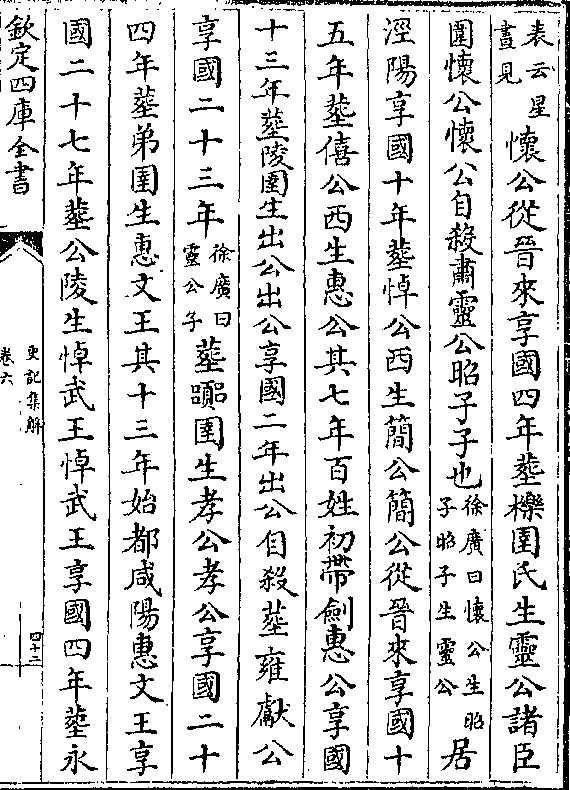 表云星晝見懷公從晉來享國四年葬櫟圉氏生靈公諸臣
圍懷公懷公自殺肅靈公昭子子也徐廣曰懷公生昭子昭子生靈公居
涇陽享國十年葬悼公西生簡公簡公從晉來享國十
五年葬僖公西生惠公其七年百姓初帶劍惠公享國
十三年葬陵圉生出公出公享國二年出公自殺葬雍獻公
享國二十三年徐廣曰靈公子葬囂圉生孝公孝公享國二十
四年葬弟圉生惠文王其十三年始都咸陽惠文王享
國二十七年葬公陵生悼武王悼武王享國四年葬永
欽定四庫全書
史記集解
卷六
四十二